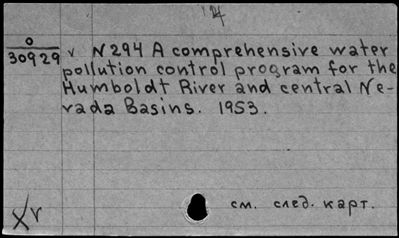 О
30929
v. N294 A comprehensive water
pollution control program for the
Humboldt River and central Ne-
vada Basins. 1953.
см. след. карт.